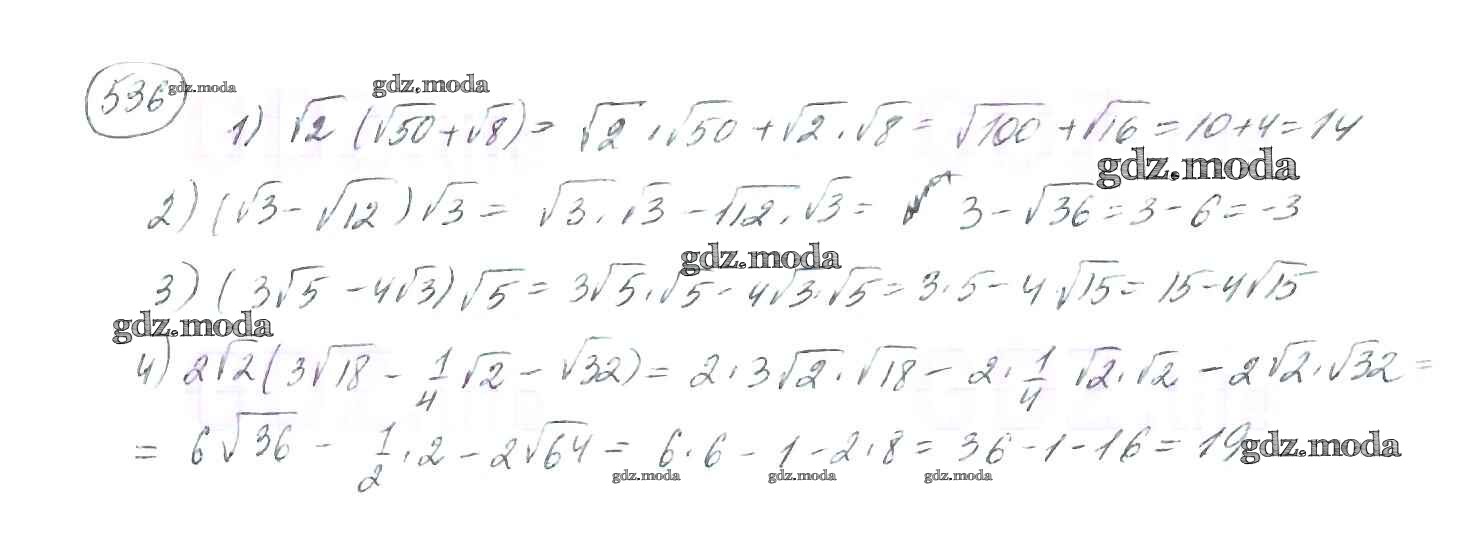 536 gdz.moda gdz.moda
1) √2 (√50 + √8) = √2 · √50 + √2 · √8 = √100 + √16 = 10 + 4 = 14
gdz.moda
2) (√3 - √12) √3 = √3 · √3 - √12 · √3 = 3 - √36 = 3 - 6 = -3
gdz.moda
3) (3√5 - 4√3) √5 = 3√5 · √5 - 4√3 · √5 = 3 · 5 - 4√15 = 15 - 4√15
gdz.moda
4) 2√2 (3√18 - 1/4 √2 - √32) = 2 · 3√2 · √18 - 2 · 1/4 √2 · √2 - 2√2 · √32 =
= 6√36 - 1/2 · 2 - 2√64 = 6 · 6 - 1 - 2 · 8 = 36 - 1 - 16 = 19 gdz.moda
gdz.moda gdz.moda gdz.moda